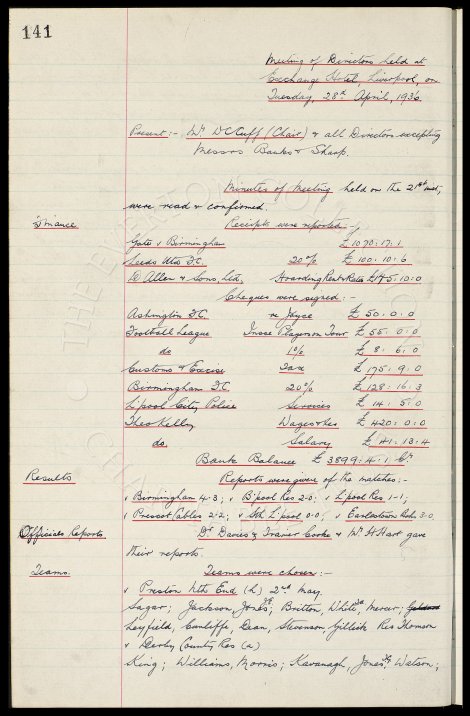 141
Meeting of Directors held at
Exchange Hotel, Liverpool, on
Tuesday, 28th April, 1936.
Present:- Mr W C Cuff (Chair) & all Directors excepting
Messrs Banks & Sharp.
Minutes of Meeting held on the 21st inst,
were read & confirmed
Finance Receipts were reported:-
Gate v Birmingham £1070:17:1
Leeds Utd F.C. 20% £100:10:6
W Allen & Sons, Ltd, Hoarding Rent & Rates £145:10:0
Cheques were signed:-
Ashington F.C. re Joyce £50:0:0
Football League Insce Players on Tour £55:0:0
do 1% £8:6:0
Customs & Excise Tax £175:9:0
Birmingham F.C. 20% £128:16:3
L'pool City Police Services £14:5:0
Theo Kelly Wages & Res £420:0:0
do. Salary £41:13:4
Bank Balance £3899:4:1 Cr
Results Reports were given of the matches:-
v Birmingham 4.3; v B'pool Res 2.0; v L'pool Res 1-1;
v Prescot Cables 2.2; v Sth L'pool 0.0; v Earlestown Boh. 3.0
Officials Reports Dr. Davies & Trainer Cooke & Mr H Hart gave
their reports.
Teams. Teams were chosen:-
v Preston Nth End (h) 2nd May
Sagar; Jackson, Jones; Britton, White, Mercer;
Leyfield, Cunliffe, Dean, Stevenson Gillick Res Thomson
v Derby County Res (a)
King; Williams, Morris; Kavanagh, Jones, Watson;